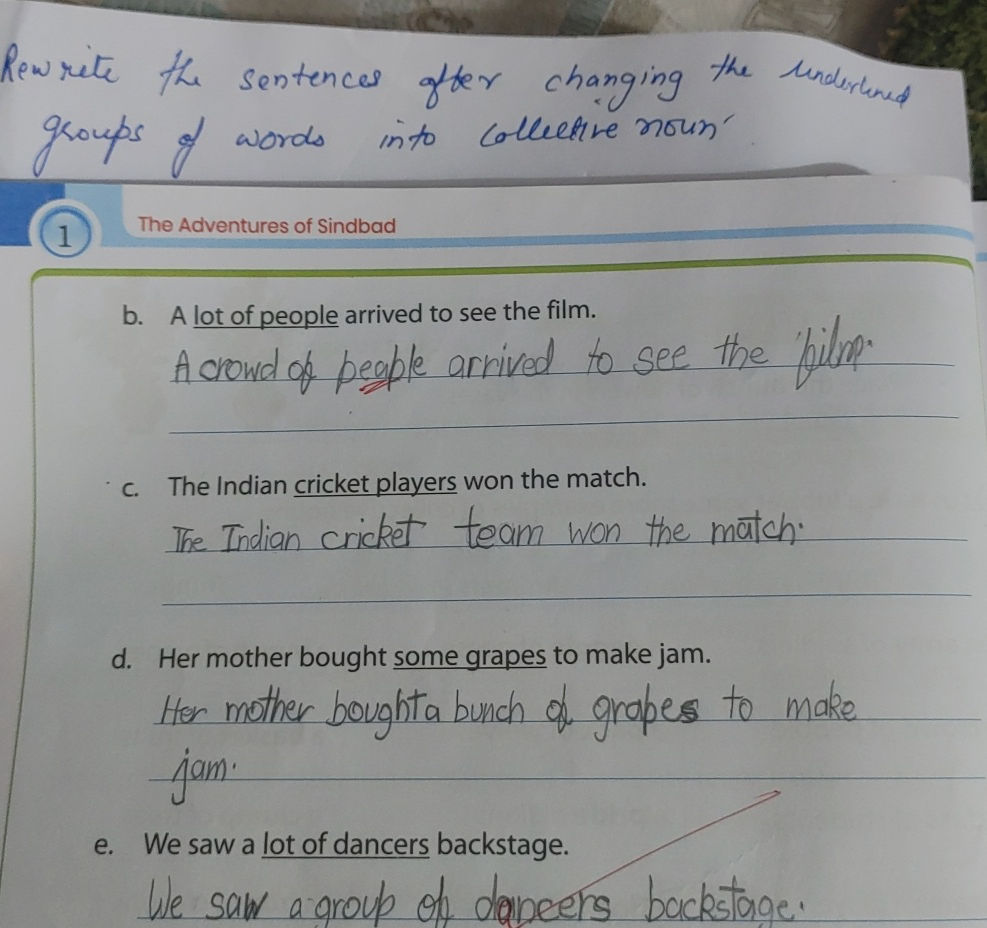 Rewrite the sentences after changing the underlined
groups of words into Collective noun
1
The Adventures of Sindbad
b. A lot of people arrived to see the film.
A crowd of people arrived to see the film.
c. The Indian cricket players won the match.
The Indian cricket team won the match.
d. Her mother bought some grapes to make jam.
Her mother bought a bunch of grapes to make
jam.
e. We saw a lot of dancers backstage.
We saw a group of dancers backstage.